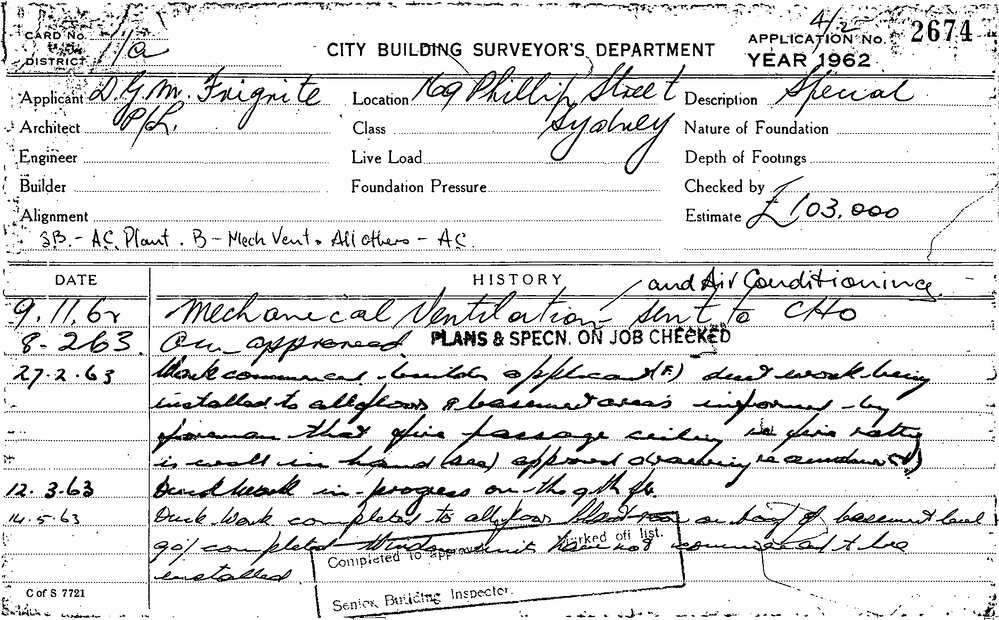 CARD No.
DISTRICT 1/a
CITY BUILDING SURVEYOR'S DEPARTMENT
4/2
APPLICATION No. 2674
YEAR 1962
Applicant D.G.M. Frigrite P/L.
Location 169 Phillip Street Sydney
Description Special
Architect
Class
Nature of Foundation
Engineer
Live Load
Depth of Footings
Builder
Foundation Pressure
Checked by
Alignment
Estimate £103,000
SB. - AC. Plant. B - Mech Vent. All others - AC.
DATE
HISTORY
and Air Conditioning
9.11.62 Mechanical Ventilation - sent to CHO
8-2 63. approved PLANS & SPECN. ON JOB CHECKED
27.2.63 Work commenced builder applicant duct work being
installed to all floors & basement areas informed by
foreman that fire passage ceiling is fire rating
is well in hand approved drawing
12.3.63 Duct Work in progress on the 9th
14.5.63 Duck Work completed to all floor Plant room basement level
90% completed units have not commenced to be
installed
Completed to approved Marked off list.
Senior Building Inspector.
C of S 7721